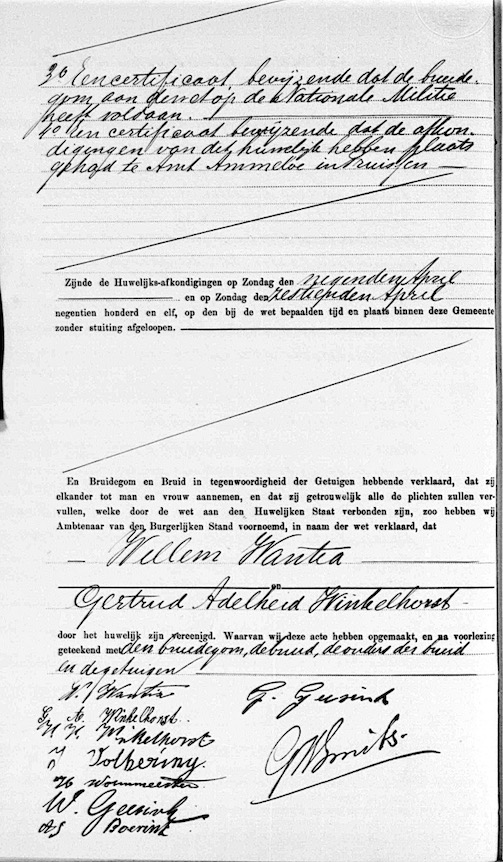 3o Een certificaat bewijzende dat de bruide-
gom aan de wet op de Nationale Militie
heeft voldaan.
4o een certificaat bewijzende dat de afkon-
digingen van dit huwelijk hebben plaats
gehad te Amt Ammeloe in Pruissen
Zijnde de Huwelijks-afkondigingen op Zondag den negenden April
en op Zondag den zestienden April
negentien honderd en elf, op den bij de wet bepaalden tijd en plaats binnen deze Gemeente
zonder stuiting afgeloopen.
En Bruidegom en Bruid in tegenwoordigheid der Getuigen hebbende verklaard, dat zij
elkander tot man en vrouw aannemen, en dat zij getrouwelijk alle de plichten zullen ver-
vullen, welke door de wet aan den Huwelijken Staat verbonden zijn, zoo hebben wij
Ambtenaar van den Burgerlijken Stand voornoemd, in naam der wet verklaard, dat
Willem Wantia
en
Gertrud Adelheid Winkelhorst
door het huwelijk zijn vereenigd. Waarvan wij deze acte hebben opgemaakt, en na voorlezing
geteekend met den bruidegom, de bruid, de ouders der bruid
en de getuigen
W. Wantia
G. Geesink
G. A. Winkelhorst
H. H. Winkelhorst
J Tolbering
GWSmits.
H Wommeester
W. Geesink
Boerink